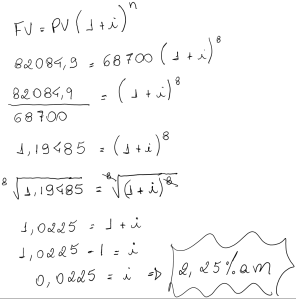 FV = PV (1+i)^n
82084,9 = 68700 (1+i)^8
82084,9 / 68700 = (1+i)^8
1,19485 = (1+i)^8
⁸√1,19485 = ⁸√(1+i)^8
1,0225 = 1+i
1,0225 - 1 = i
0,0225 = i => 2,25% am